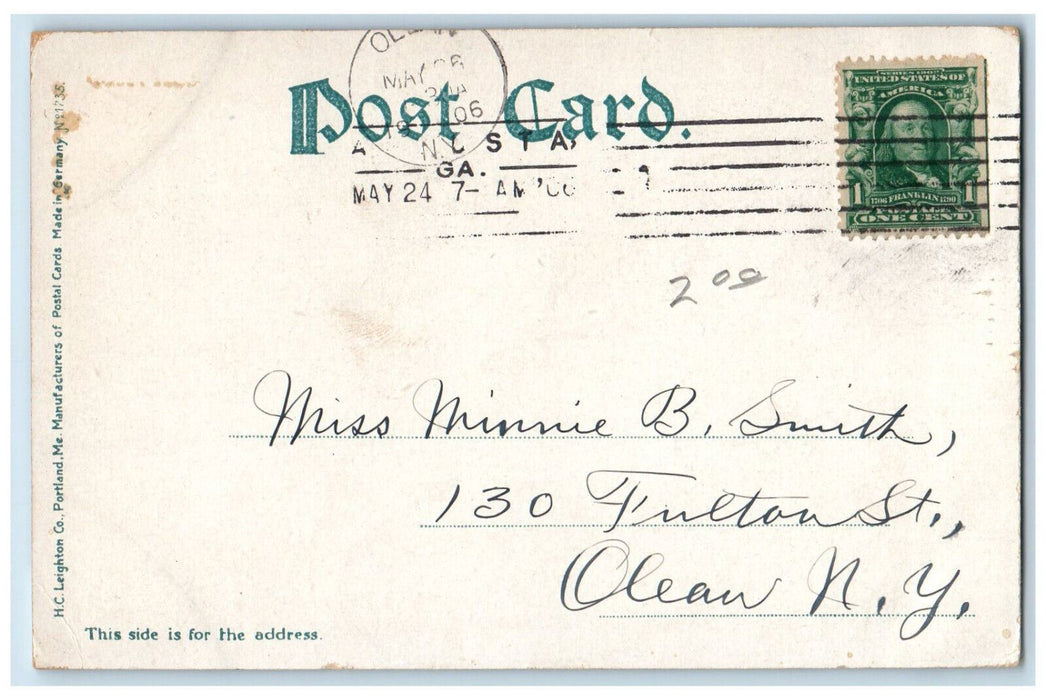 OLEAN
MAY 26
1906
N.Y.
Post Card.
GA.
MAY 24 7-AM '06
SERIES 1902
UNITED STATES OF
AMERICA
1 1
1706 FRANKLIN 1790
POSTAGE
ONE CENT
2 00
Miss Minnie B. Smith,
130 Fulton St.,
Olean N.Y.
This side is for the address.
H.C. Leighton Co., Portland, Me. Manufacturers of Postal Cards Made in Germany No 1733.